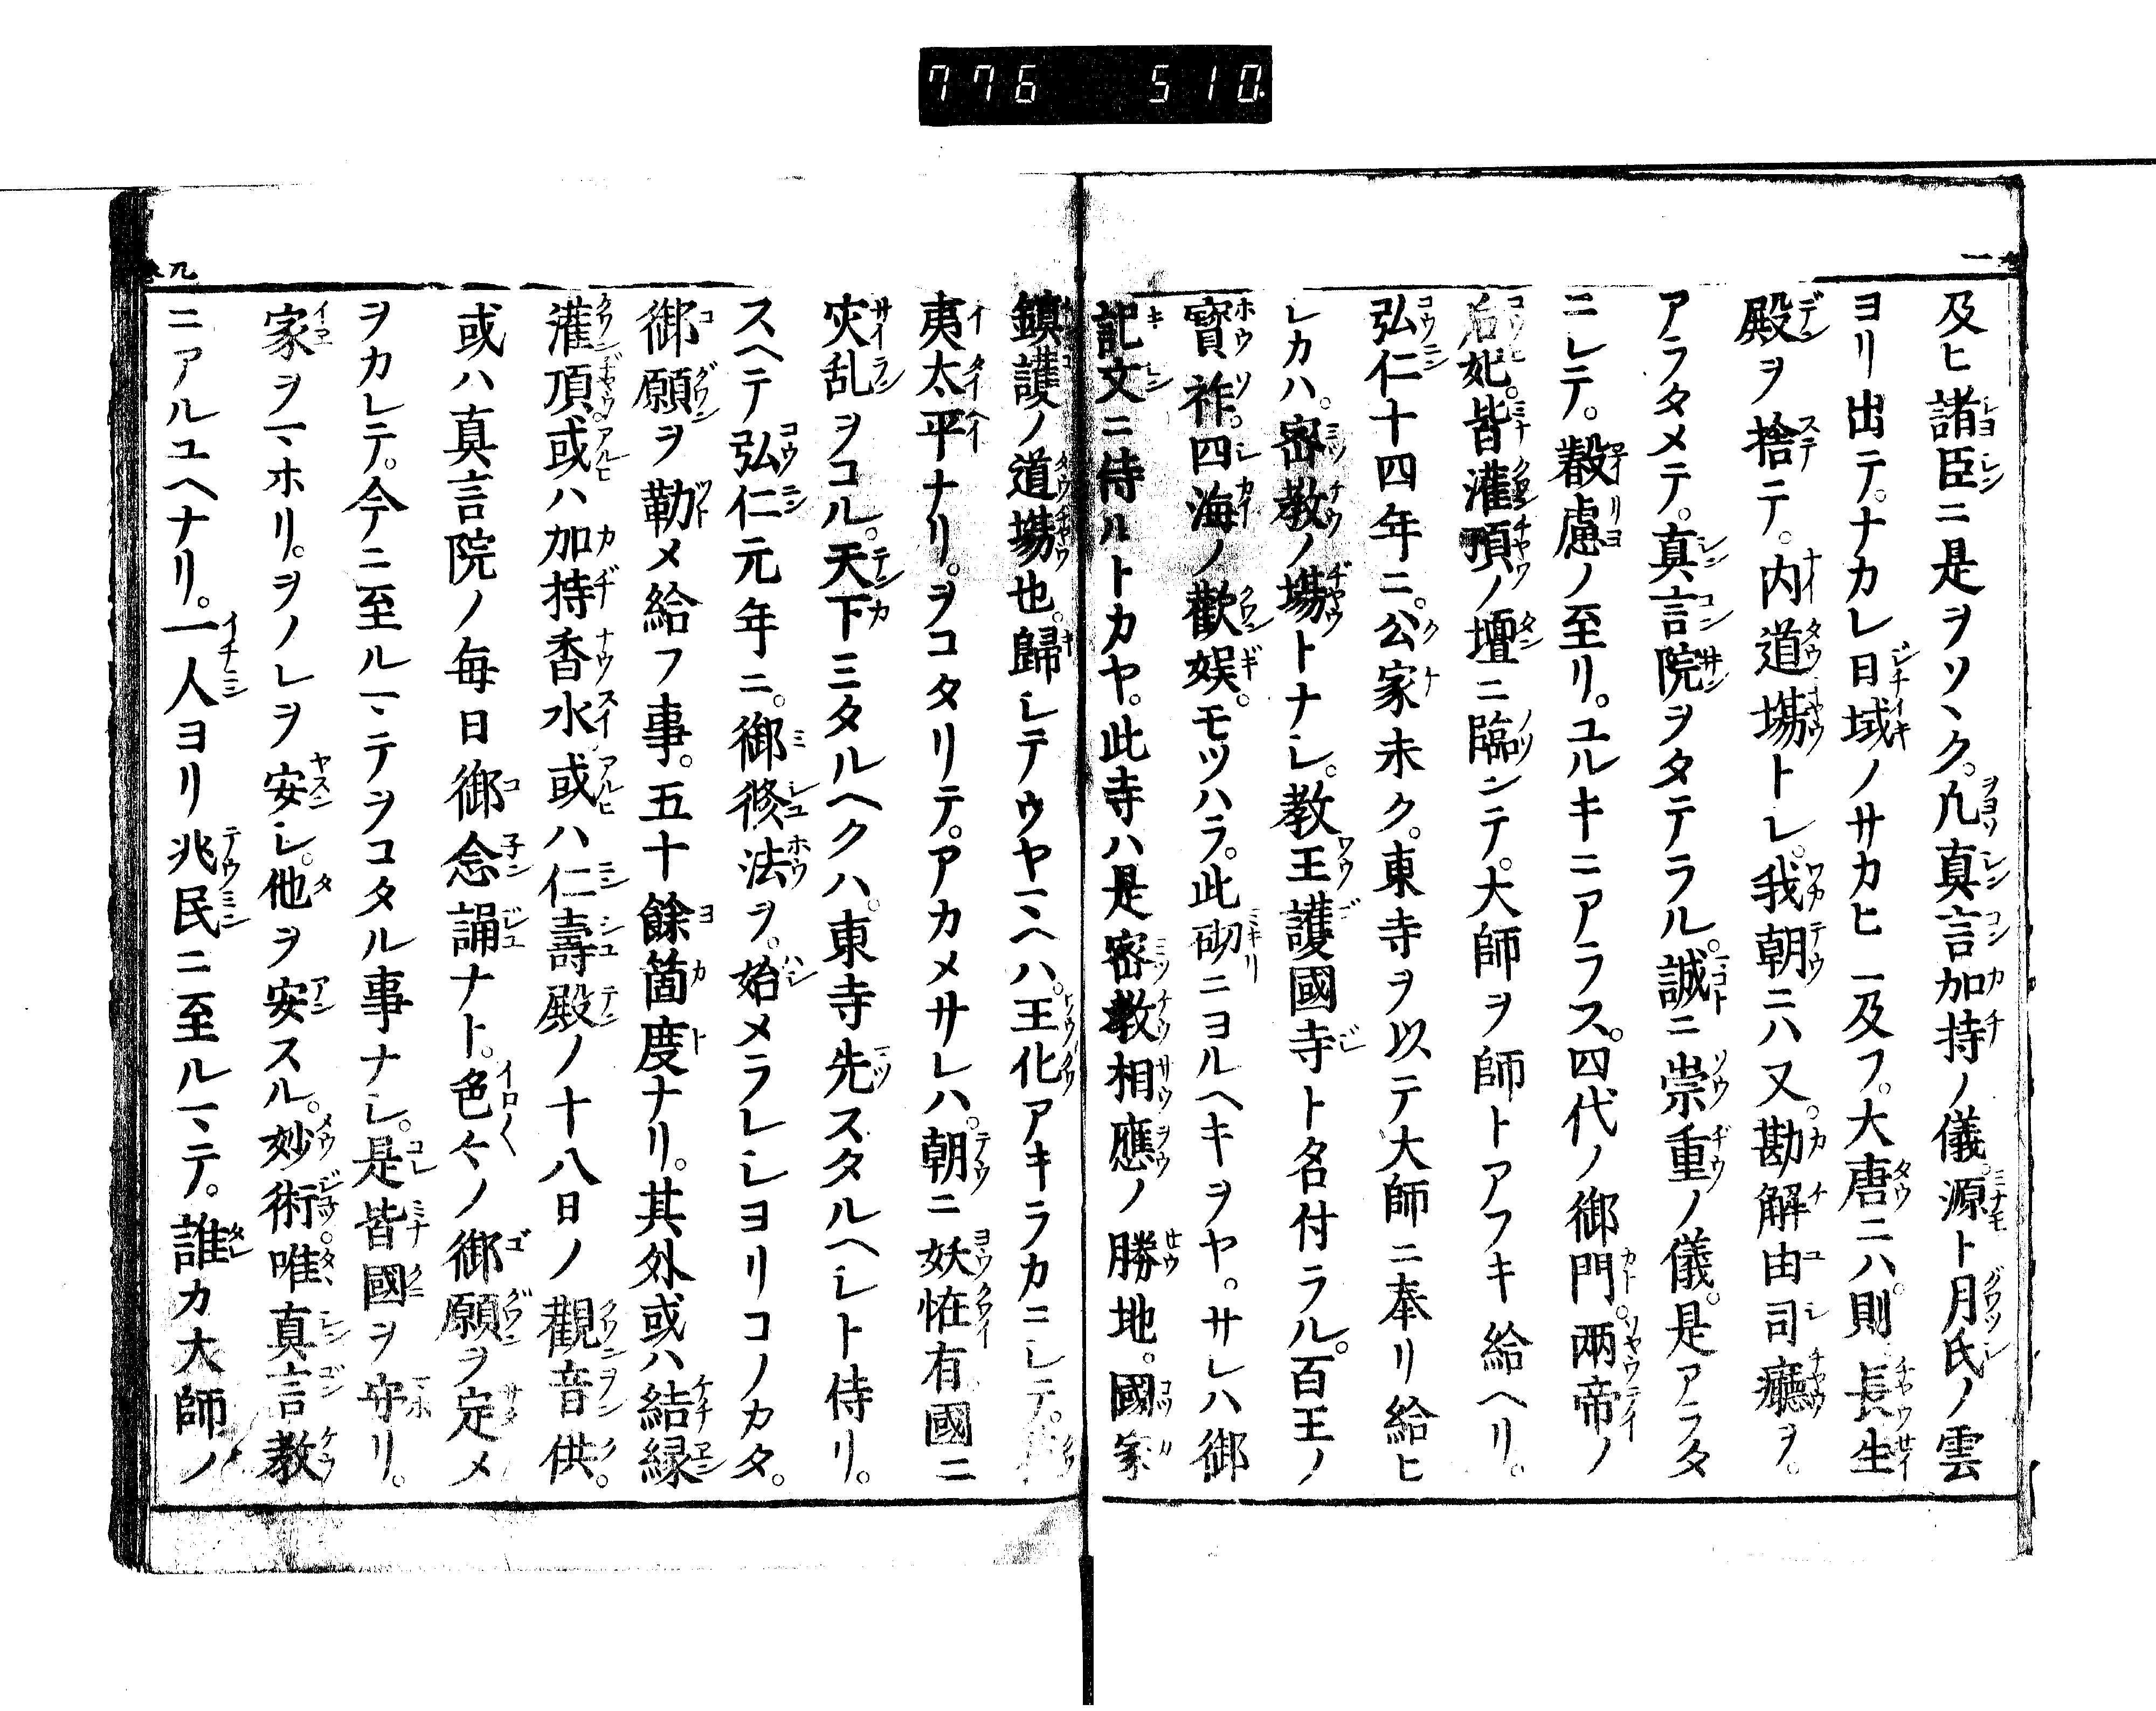 776 510
及ヒ諸臣ニ是ヲソヽク。凡真言加持ノ儀。源ト月氏ノ雲
ヨリ出テ。ナカレ日域ノサカヒニ及フ。大唐ニハ則長生
殿ヲ捨テ。内道場トレ。我朝ニハ又。勘解由司廳ヲ。
アラタメテ。真言院ヲタテラル。誠ニ崇重ノ儀。是アラタ
ニレテ。叡慮ノ至リ。ユルキニアラス。四代ノ御門。兩帝ノ
后妃。皆灌頂ノ壇ニ臨ンテ。大師ヲ師トアフキ給ヘリ。
弘仁十四年ニ。公家未ク。東寺ヲ以テ大師ニ奉リ給ヒ
レカハ。密教ノ場トナレ。教王護國寺ト名付ラル。百王ノ
寳祚。四海ノ歡娯。モツハラ。此砌ニヨルヘキヲヤ。サレハ御
記文ニ侍ルトカヤ。此寺ハ是密教相應ノ勝地。國家
鎮護ノ道場也。歸レテウヤマヘハ。王化アキラカニレテ。
夷太平ナリ。ヲコタリテ。アカメサレハ。朝ニ妖恠有國ニ
灾乱ヲコル。天下ミタルヘクハ。東寺先スタルヘレト侍リ。
スヘテ弘仁元年ニ。御修法ヲ。始メラレレヨリコノカタ。
御願ヲ勒メ給フ事。五十餘箇度ナリ。其外或ハ結縁
灌頂。或ハ加持香水或ハ仁壽殿ノ十八日ノ觀音供。
或ハ真言院ノ毎日御念誦ナト。色々ノ御願ヲ定メ
ヲカレテ。今ニ至ルマテヲコタル事ナレ。是皆國ヲ守リ。
家ヲマホリ。ヲノレヲ安レ。他ヲ安スル。妙術。唯真言教
ニアルユヘナリ。一人ヨリ兆民ニ至ルマテ。誰カ大師ノ